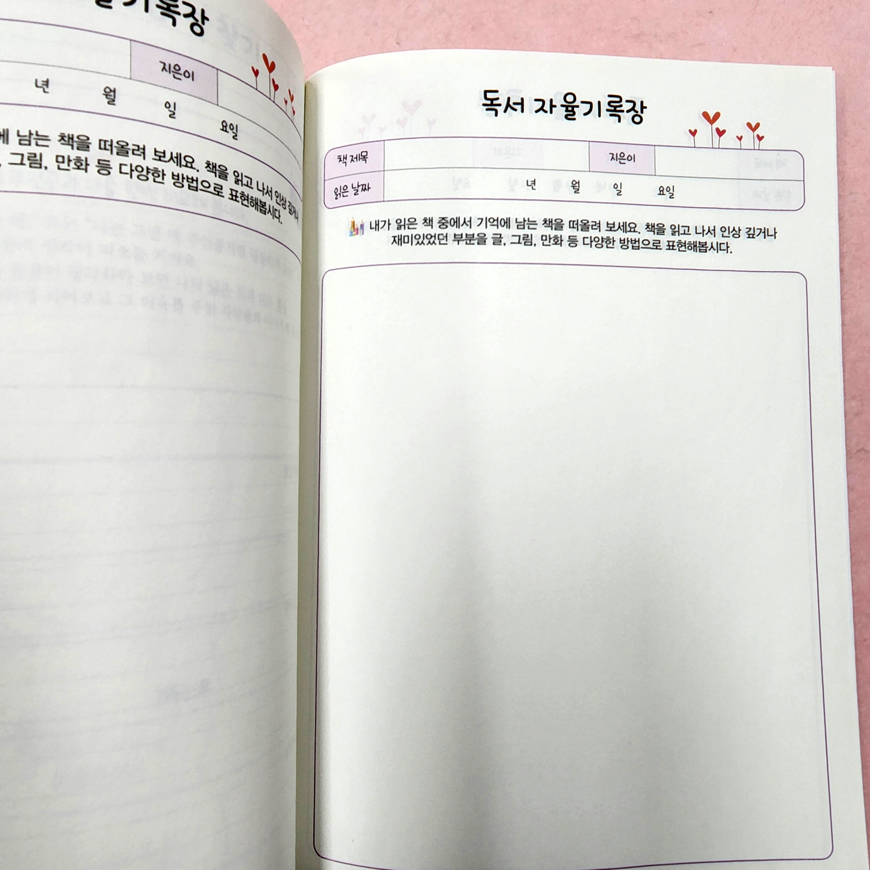 기록장
지은이
년 월 일 요일
에 남는 책을 떠올려 보세요. 책을 읽고 나서 인상 깊거나
그림, 만화 등 다양한 방법으로 표현해봅시다.
독서 자율기록장
책 제목 지은이
읽은 날짜 년 월 일 요일
내가 읽은 책 중에서 기억에 남는 책을 떠올려 보세요. 책을 읽고 나서 인상 깊거나
재미있었던 부분을 글, 그림, 만화 등 다양한 방법으로 표현해봅시다.